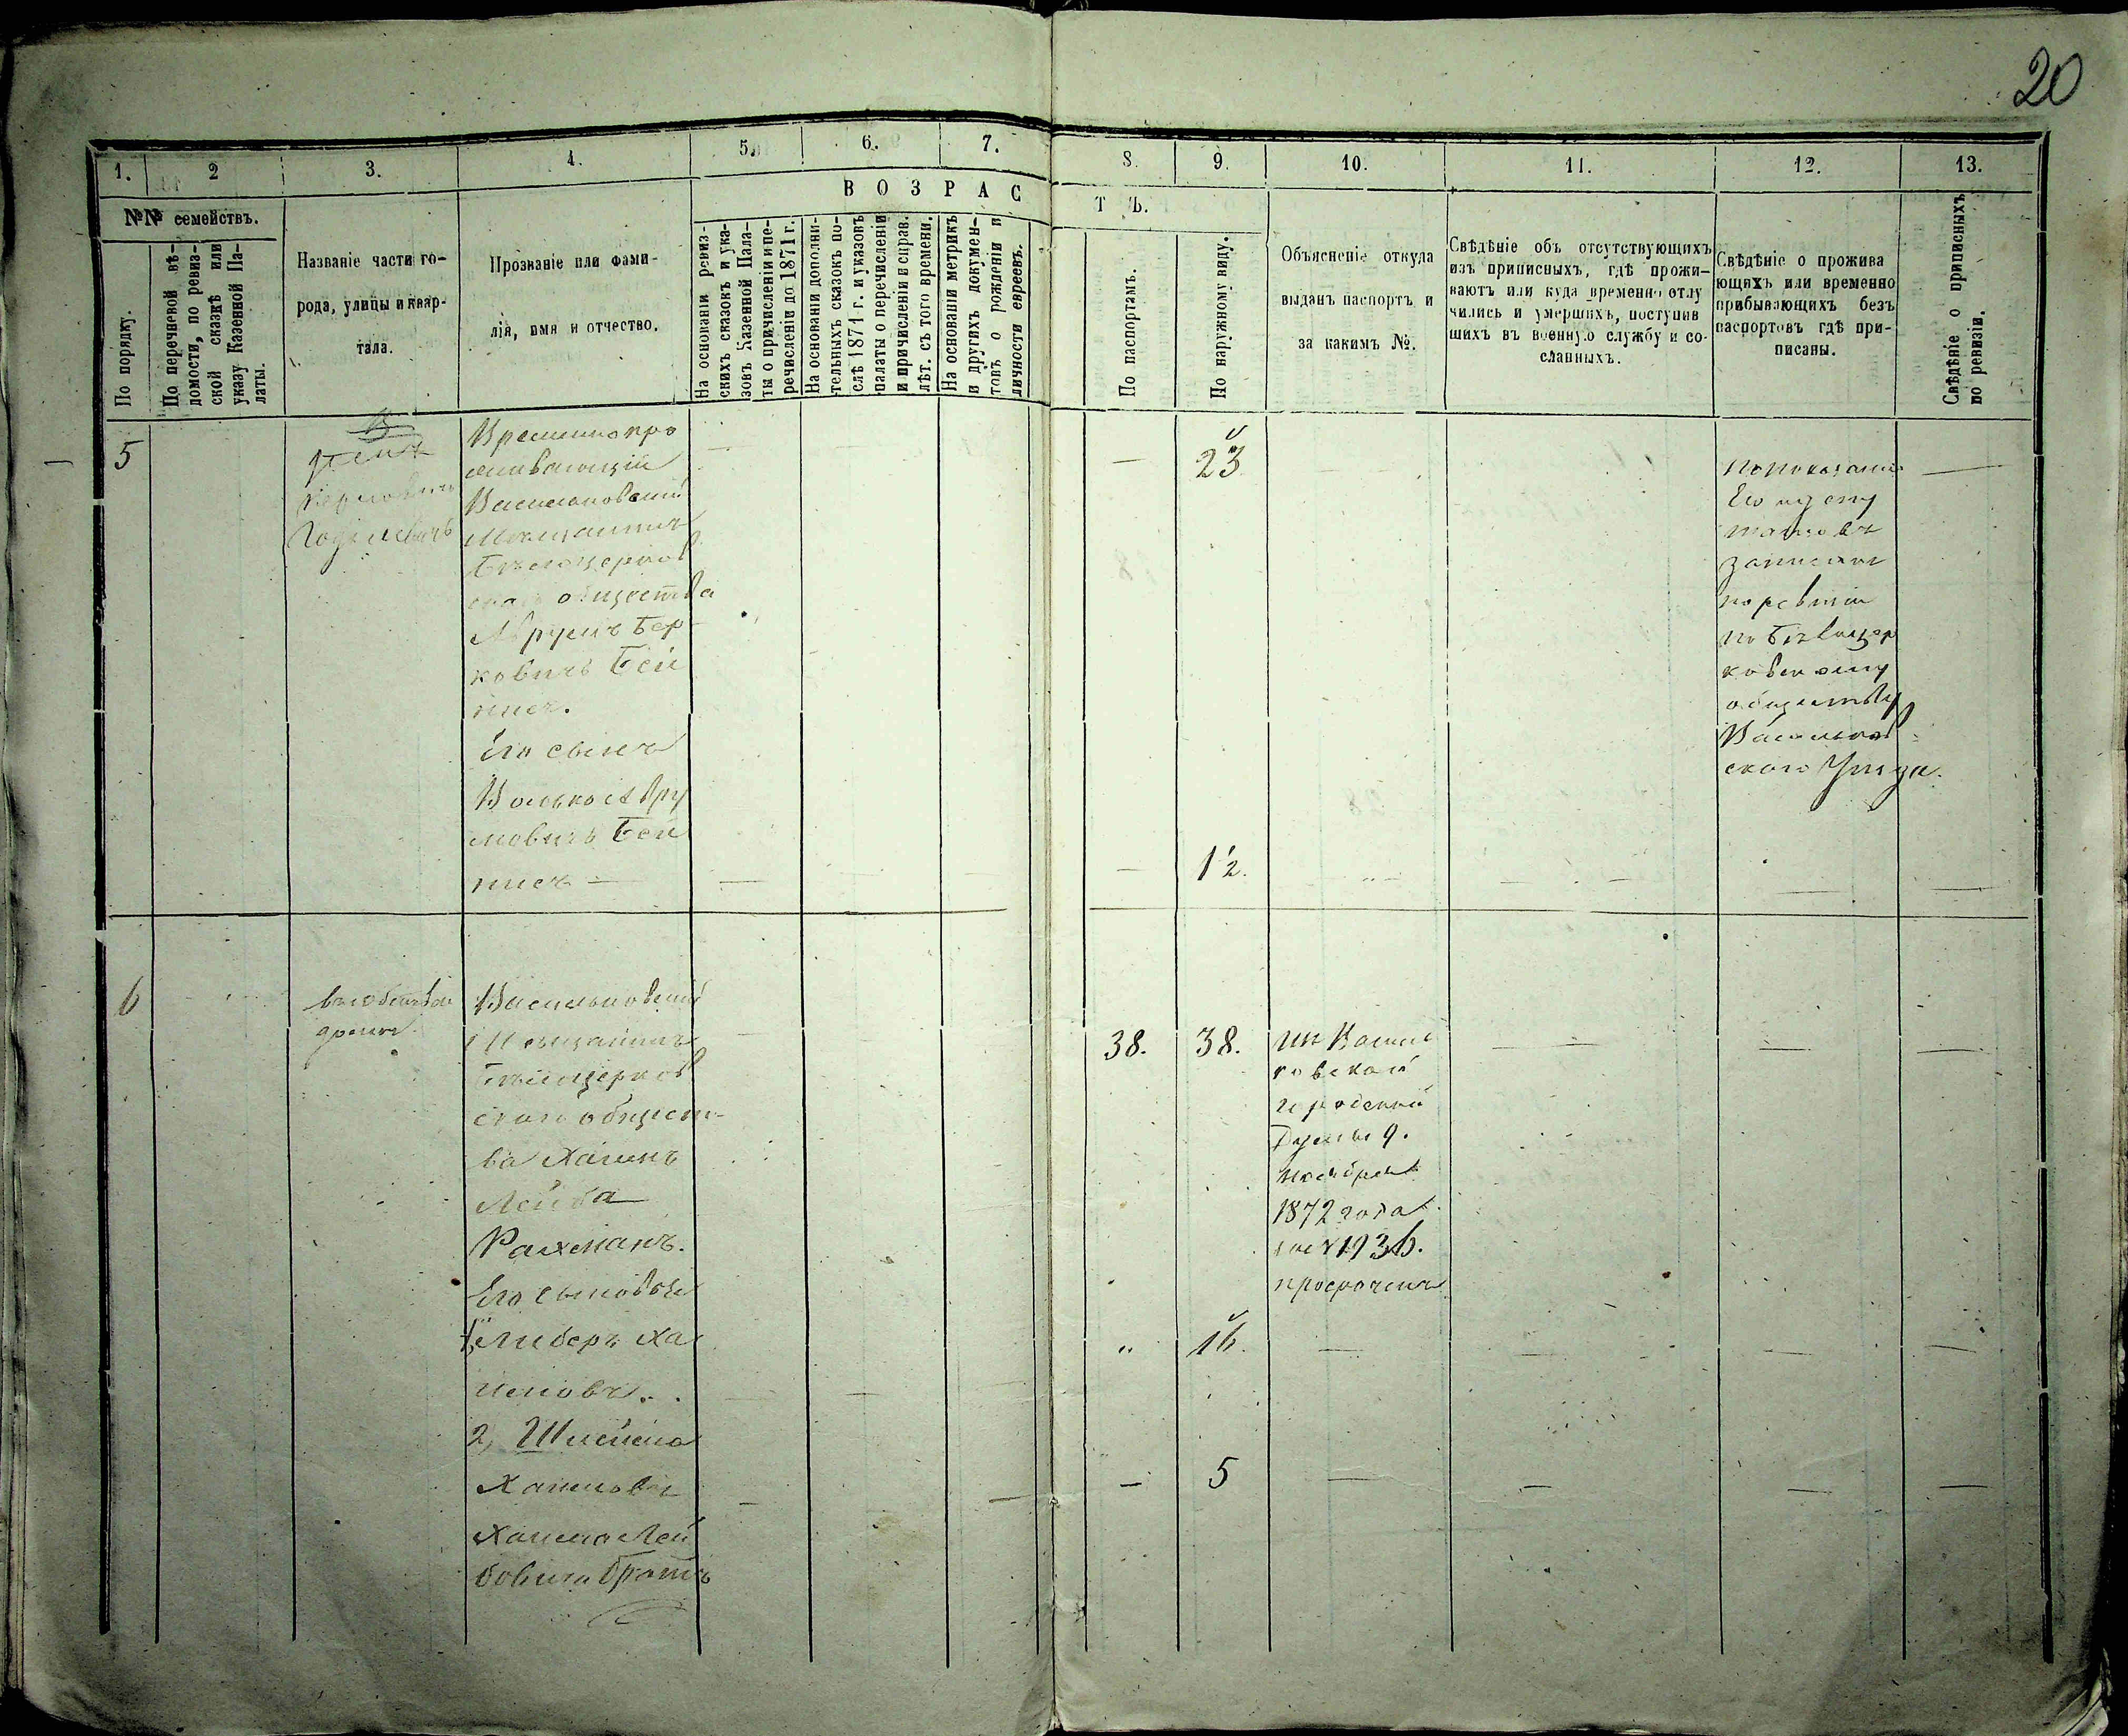 20
1. 2 3. 4. 5. 6. 7. 8. 9. 10. 11. 12. 13.
ВОЗРАСТЪ.
№№ семействъ.
По порядку.
По перечневой вѣ-
домости, по ревиз-
ской сказкѣ или
указу Казенной Па-
латы.
Названіе части го-
рода, улицы и квар-
тала.
Прозваніе или фами-
лія, имя и отчество.
На основаніи ревиз-
скихъ сказокъ и ука-
зовъ Казенной Пала-
ты о причисленіи и пе-
речисленіи до 1871 г.
На основаніи дополни-
тельныхъ сказокъ по-
слѣ 1871 г. и указовъ
палаты о перечисленіи
и причисленіи и справ.
лѣт. съ того времени.
На основаніи метрикъ
и другихъ докумен-
товъ о рожденіи и
личности евреевъ.
По паспортамъ.
По наружному виду.
Объясненіе откуда
выданъ паспортъ и
за какимъ №.
Свѣдѣніе объ отсутствующихъ
изъ приписныхъ, гдѣ прожи-
ваютъ или куда временно отлу
чились и умершихъ, поступив
шихъ въ военную службу и со-
сланныхъ.
Свѣдѣніе о прожива
ющихъ или временно
прибывающихъ безъ
паспортовъ гдѣ при-
писаны.
Свѣдѣніе о приписныхъ
по ревизіи.
5
Временно про
живающій
Васильковскій
Мѣщанинъ
Бѣлоцерков
скаго общества
Аврумъ Бер
ковичъ Бей
Его сынъ
Волько Авру
мовичъ Бей
23
12.
по показанію
Его
записанъ
по ревизіи
по Бѣлоцер
ковскому
обществу
Васильков
скаго Уѣзда.
6
въ собствен
домѣ
Васильковскій
Мѣщанинъ
Бѣлоцерков
скаго общест-
ва Хаимъ
Лейба
Рахманъ.
Его сыновья
1, Либеръ Ха
имовъ.
2, Шлейма
Хаимовъ
Хаима Лей
бовича братъ
38. 38.
Изъ Василь
ковской
городской
Думы 9.
ноября
1872 года
за № 1936.
просроченъ
16.
5